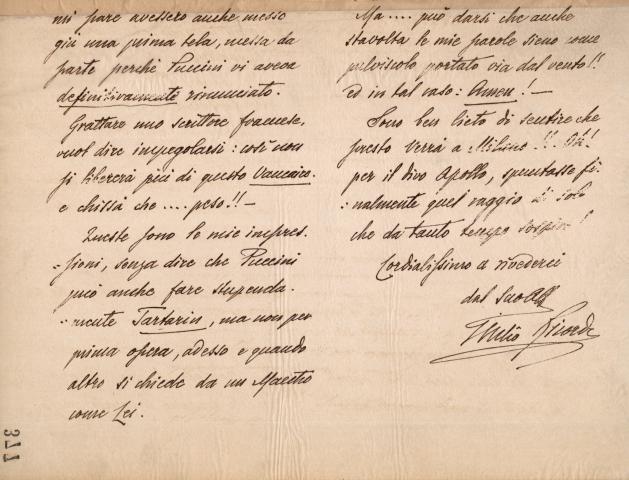 mi pare avessero anche messo
giù una prima tela, messa da
parte perchè Puccini vi aveva
definitivamente rinunciato.
Grattare uno scrittore francese,
vuol dire impegolarsi: così non
si libererà più di questo Vaucaire.
e chissà che .... peso!! —
Queste sono le mie impres-
-sioni, senza dire che Puccini
può anche fare stupenda-
-mente Tartarin, ma non per
prima opera, adesso e quando
altro si chiede da un Maestro
come Lei.
Ma .... può darsi che anche
stavolta le mie parole sieno come
pulviscolo portato via dal vento!!
ed in tal caso: Amen! —
Sono ben lieto di sentire che
presto verrà a Milano. !! Oh!
per il divo Apollo, spuntasse fi-
-nalmente quel raggio di sole
che da tanto tempo sospiro!
Cordialissimo a rivederci
dal Suo Aff
Giulio Ricordi
377